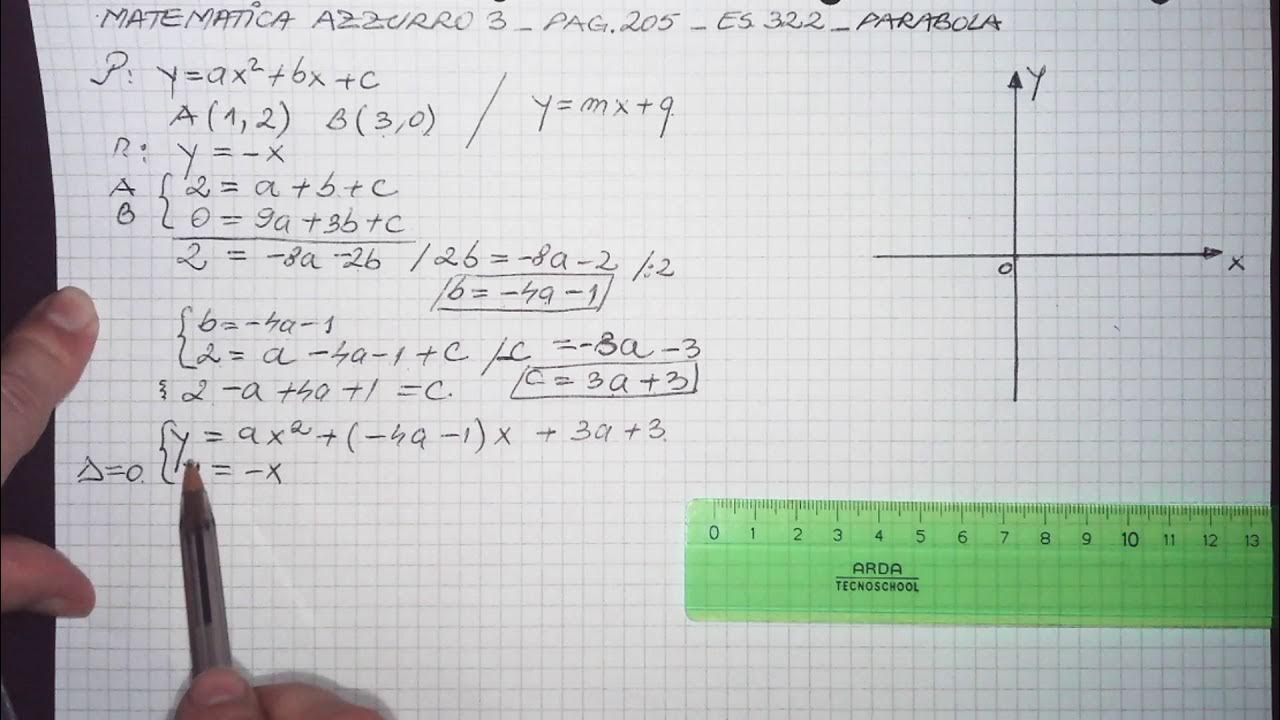 MATEMATICA AZZURRO 3 - PAG. 205 - ES. 322 - PARABOLA
P: y=ax²+bx+c
A(1,2) B(3,0) / y=mx+q
R: y=-x
A { 2=a+b+c
B { 0=9a+3b+c
2 = -8a-2b / 2b=-8a-2 /:2
b=-4a-1
{ b=-4a-1
{ 2=a-4a-1+c /-c =-3a-3
{ 2-a+4a+1=c. c=3a+3
{ y=ax²+(-4a-1)x+3a+3
Δ=0. { y=-x
y
x
0
0 1 2 3 4 5 6 7 8 9 10 11 12 13
ARDA
TECNOSCHOOL